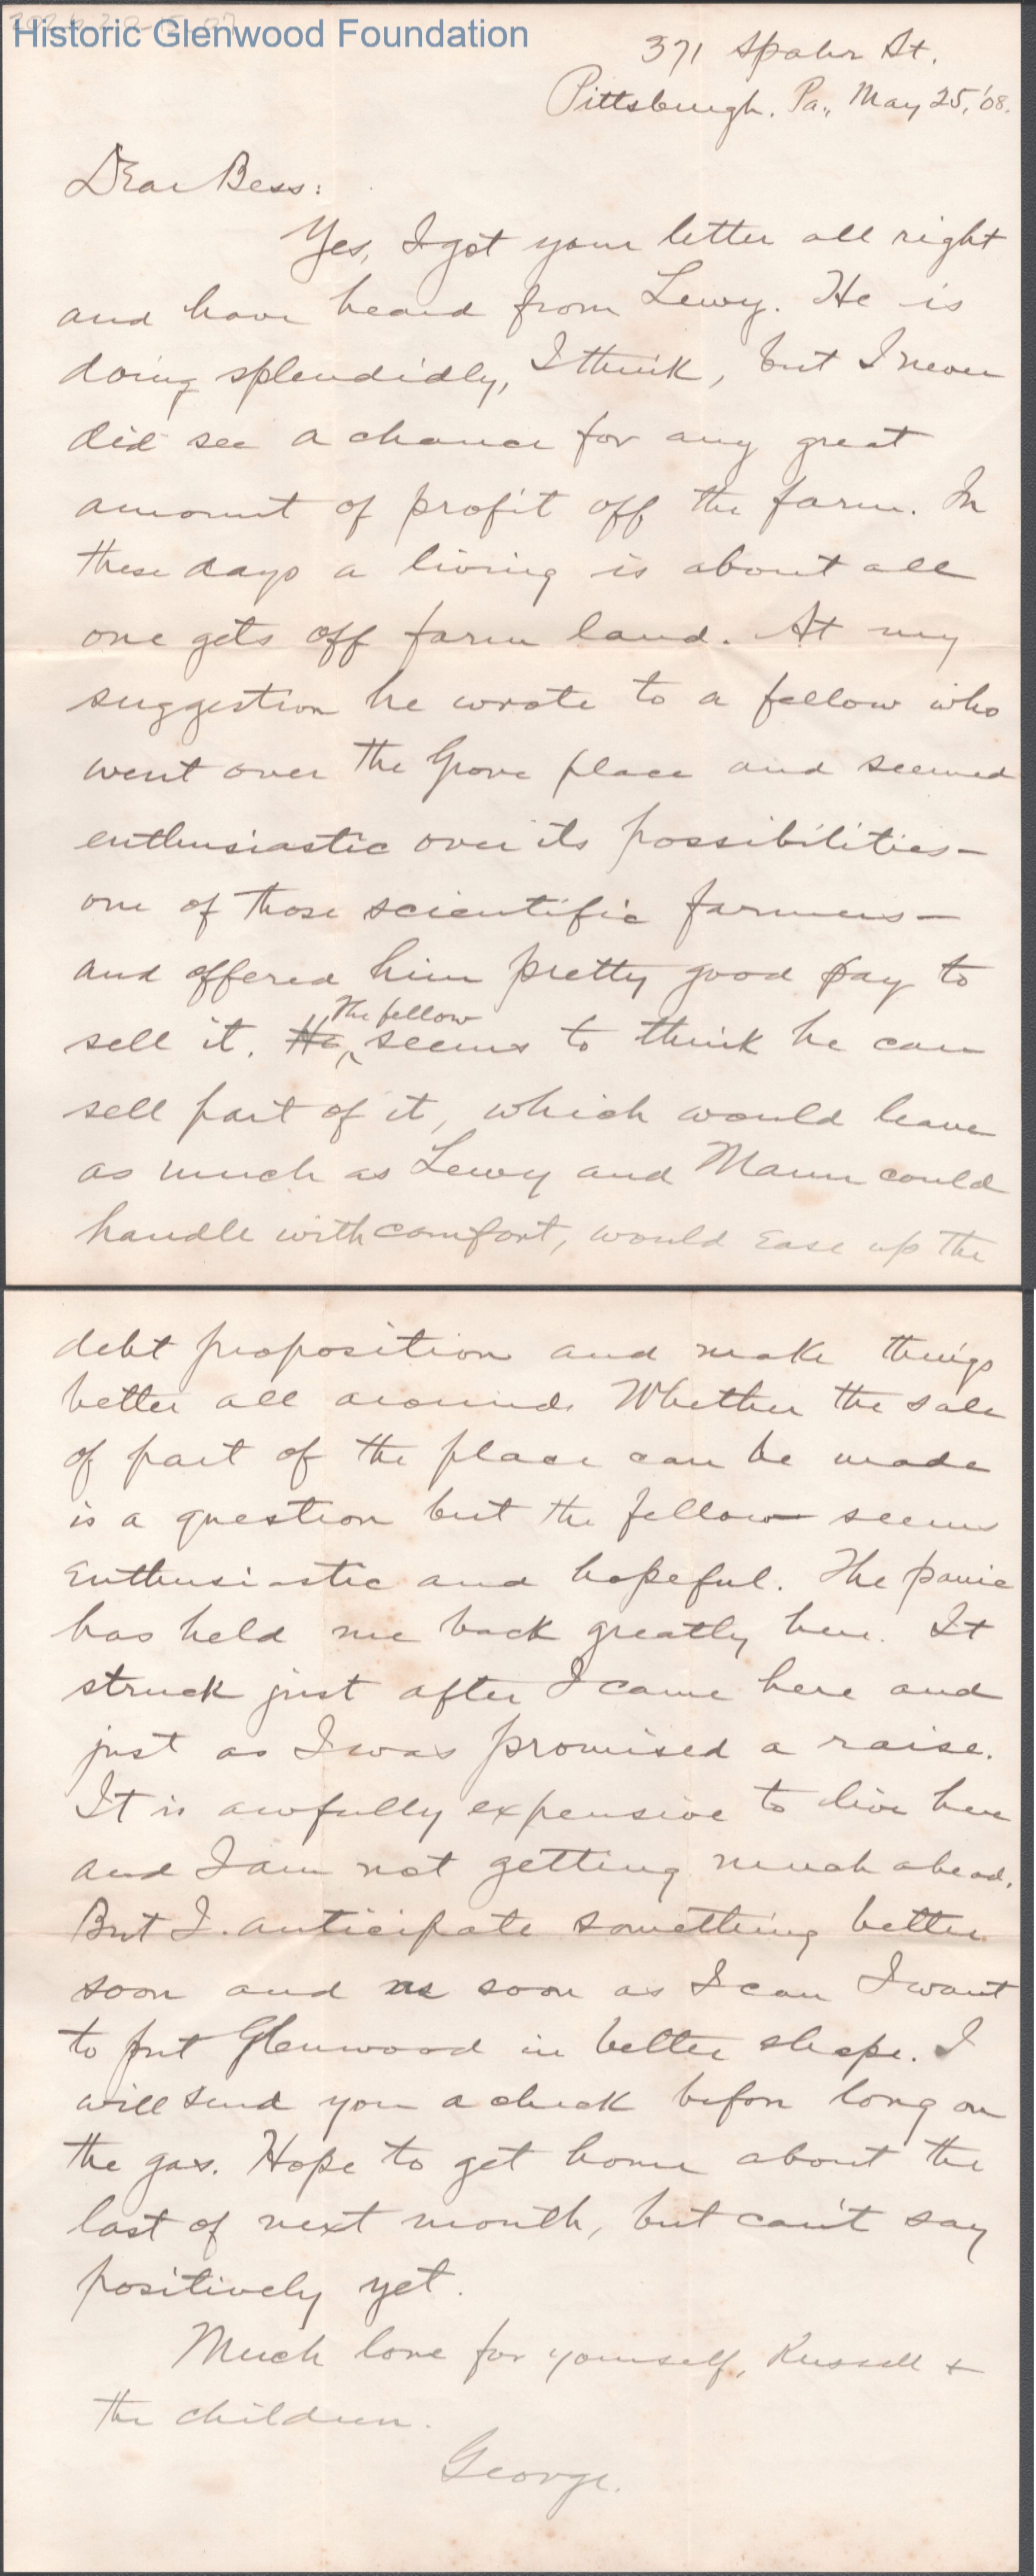 Historic Glenwood Foundation
371 Spahr St.
Pittsburgh, Pa., May 25, '08.
Dear Bess:
Yes, I got your letter all right
and have heard from Lewy. He is
doing splendidly, I think, but I never
did see a chance for any great
amount of profit off the farm. In
these days a living is about all
one gets off farm land. At my
suggestion he wrote to a fellow who
went over the Grove place and seemed
enthusiastic over its possibilities—
one of those scientific farmers—
and offered him pretty good pay to
sell it. He The fellow seems to think he can
sell part of it, which would leave
as much as Lewy and Mann could
handle with comfort, would ease up the
debt proposition and make things
better all around. Whether the sale
of part of the place can be made
is a question but the fellow seems
enthusiastic and hopeful. The panic
has held me back greatly here. It
struck just after I came here and
just as I was promised a raise.
It is awfully expensive to live here
and I am not getting much ahead.
But I anticipate something better
soon and as soon as I can I want
to put Glenwood in better shape. I
will send you a check before long on
the gas. Hope to get home about the
last of next month, but can't say
positively yet.
Much love for yourself, Russell +
the children.
George.